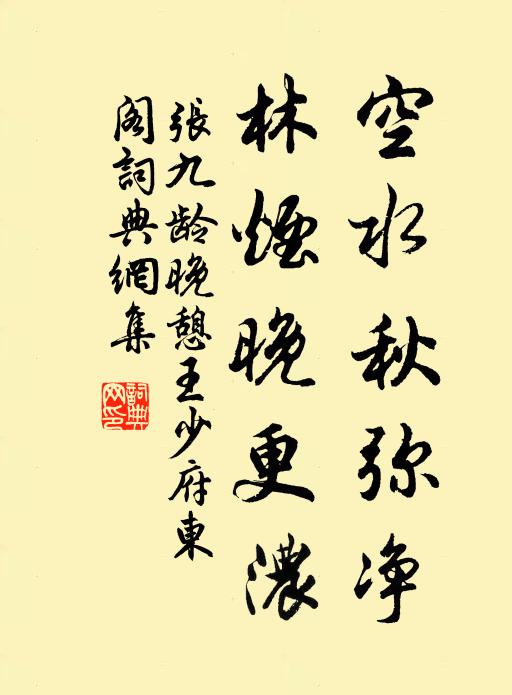 空水秋弥净
林煙晚更濃
張九龄晚憩王少府東
阁詞典網集
詞典網印